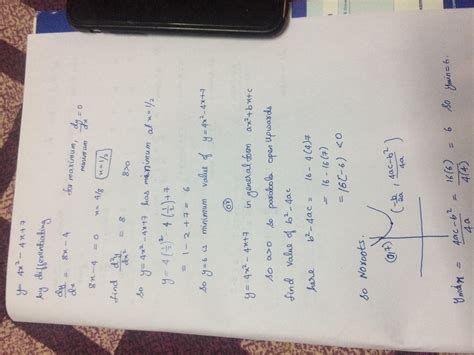 y = 4x² - 4x + 7
by differentiating
dy/dx = 8x - 4    for maximum, minimum dy/dx = 0
8x - 4 = 0    x = 4/8    x = 1/2
find d²y/dx² = 8    8>0
so y = 4x² - 4x + 7 has minimum at x = 1/2
y = 4(1/2)² - 4(1/2) + 7
= 1 - 2 + 7 = 6
so y = 6 is minimum value of y = 4x² - 4x + 7
(or)
y = 4x² - 4x + 7    in general form ax² + bx + c
so a>0 so parabola open upwards
find value of b² - 4ac
here b² - 4ac = 16 - 4(4)7
= 16 - 16(7)
= 16(-6) < 0
so No roots.
(0,7)
(-b/2a, 4ac-b²/4a)
ymin = 4ac-b²/4a = 16(6)/4(4) = 6 so ymin = 6.